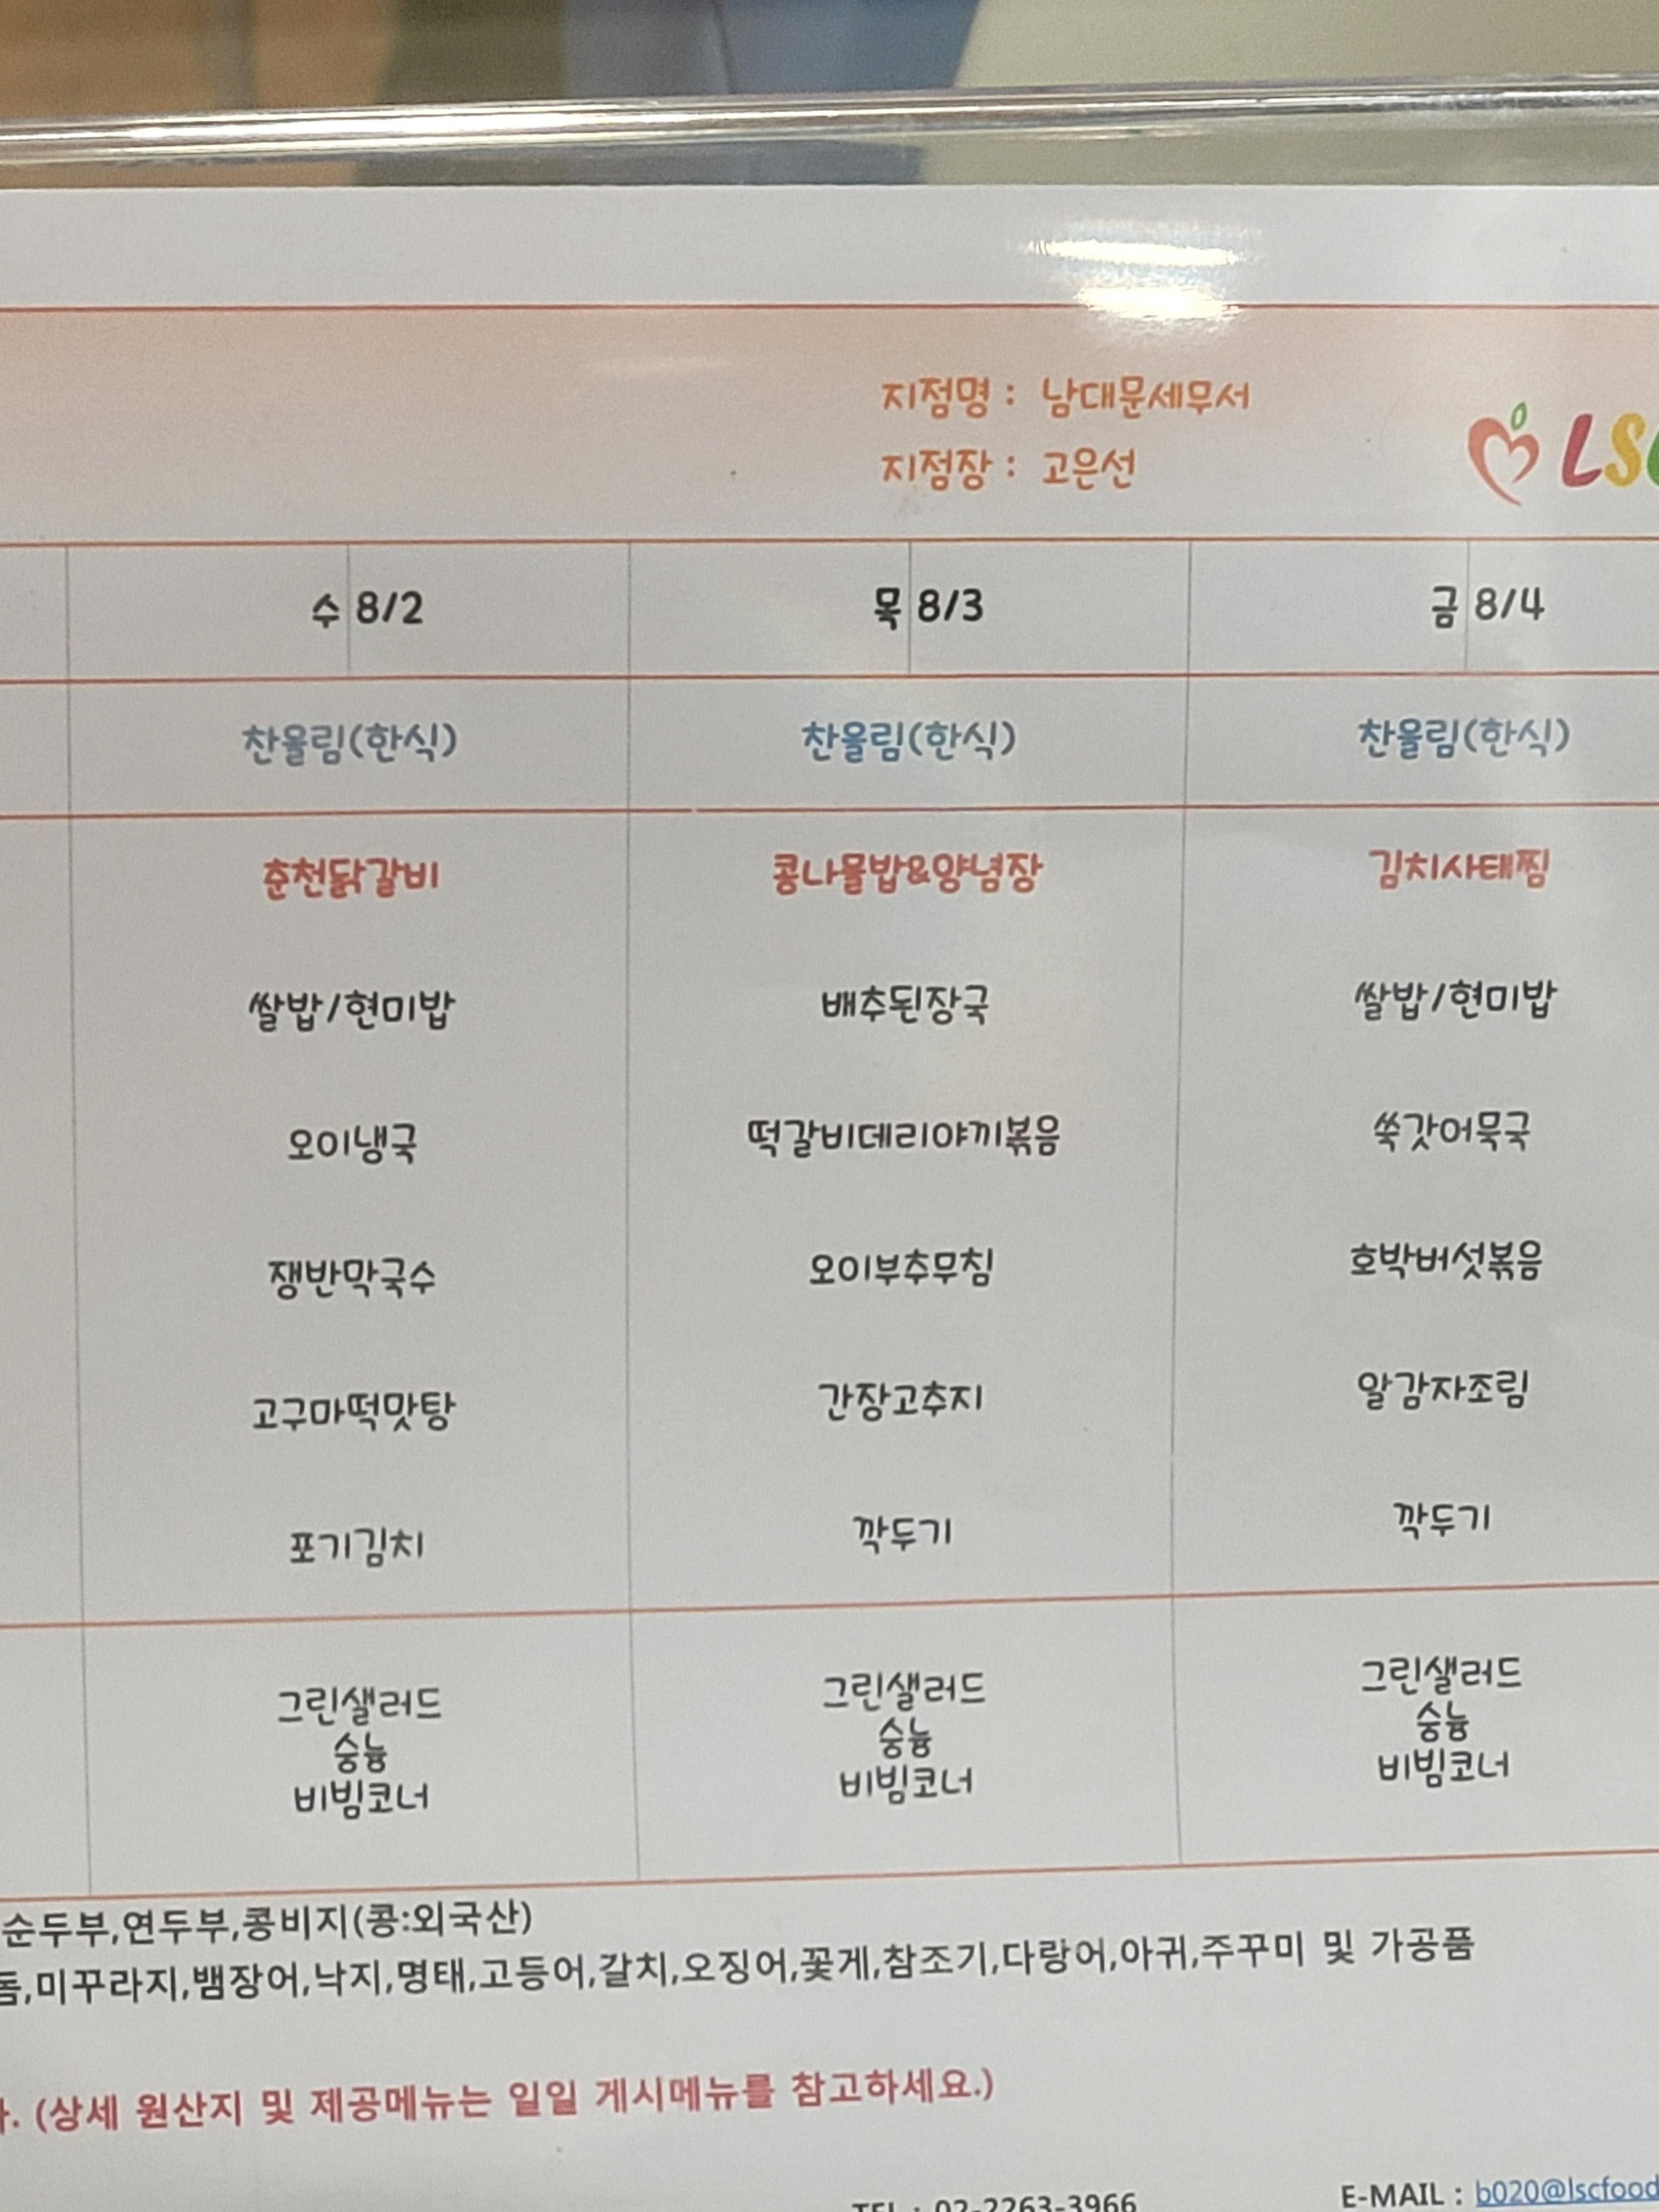 지점명 : 남대문세무서
지점장 : 고은선
수 8/2 목 8/3 금 8/4
찬울림(한식) 찬울림(한식) 찬울림(한식)
춘천닭갈비 콩나물밥&양념장 김치사태찜
쌀밥/현미밥 배추된장국 쌀밥/현미밥
오이냉국 떡갈비데리야끼볶음 쑥갓어묵국
쟁반막국수 오이부추무침 호박버섯볶음
고구마떡맛탕 간장고추지 알감자조림
포기김치 깍두기 깍두기
그린샐러드 그린샐러드 그린샐러드
숭늉 숭늉 숭늉
비빔코너 비빔코너 비빔코너
순두부,연두부,콩비지(콩:외국산)
돔,미꾸라지,뱀장어,낙지,명태,고등어,갈치,오징어,꽃게,참조기,다랑어,아귀,주꾸미 및 가공품
(상세 원산지 및 제공메뉴는 일일 게시메뉴를 참고하세요.)
TEL : 02-2263-3966 E-MAIL : b020@lscfood